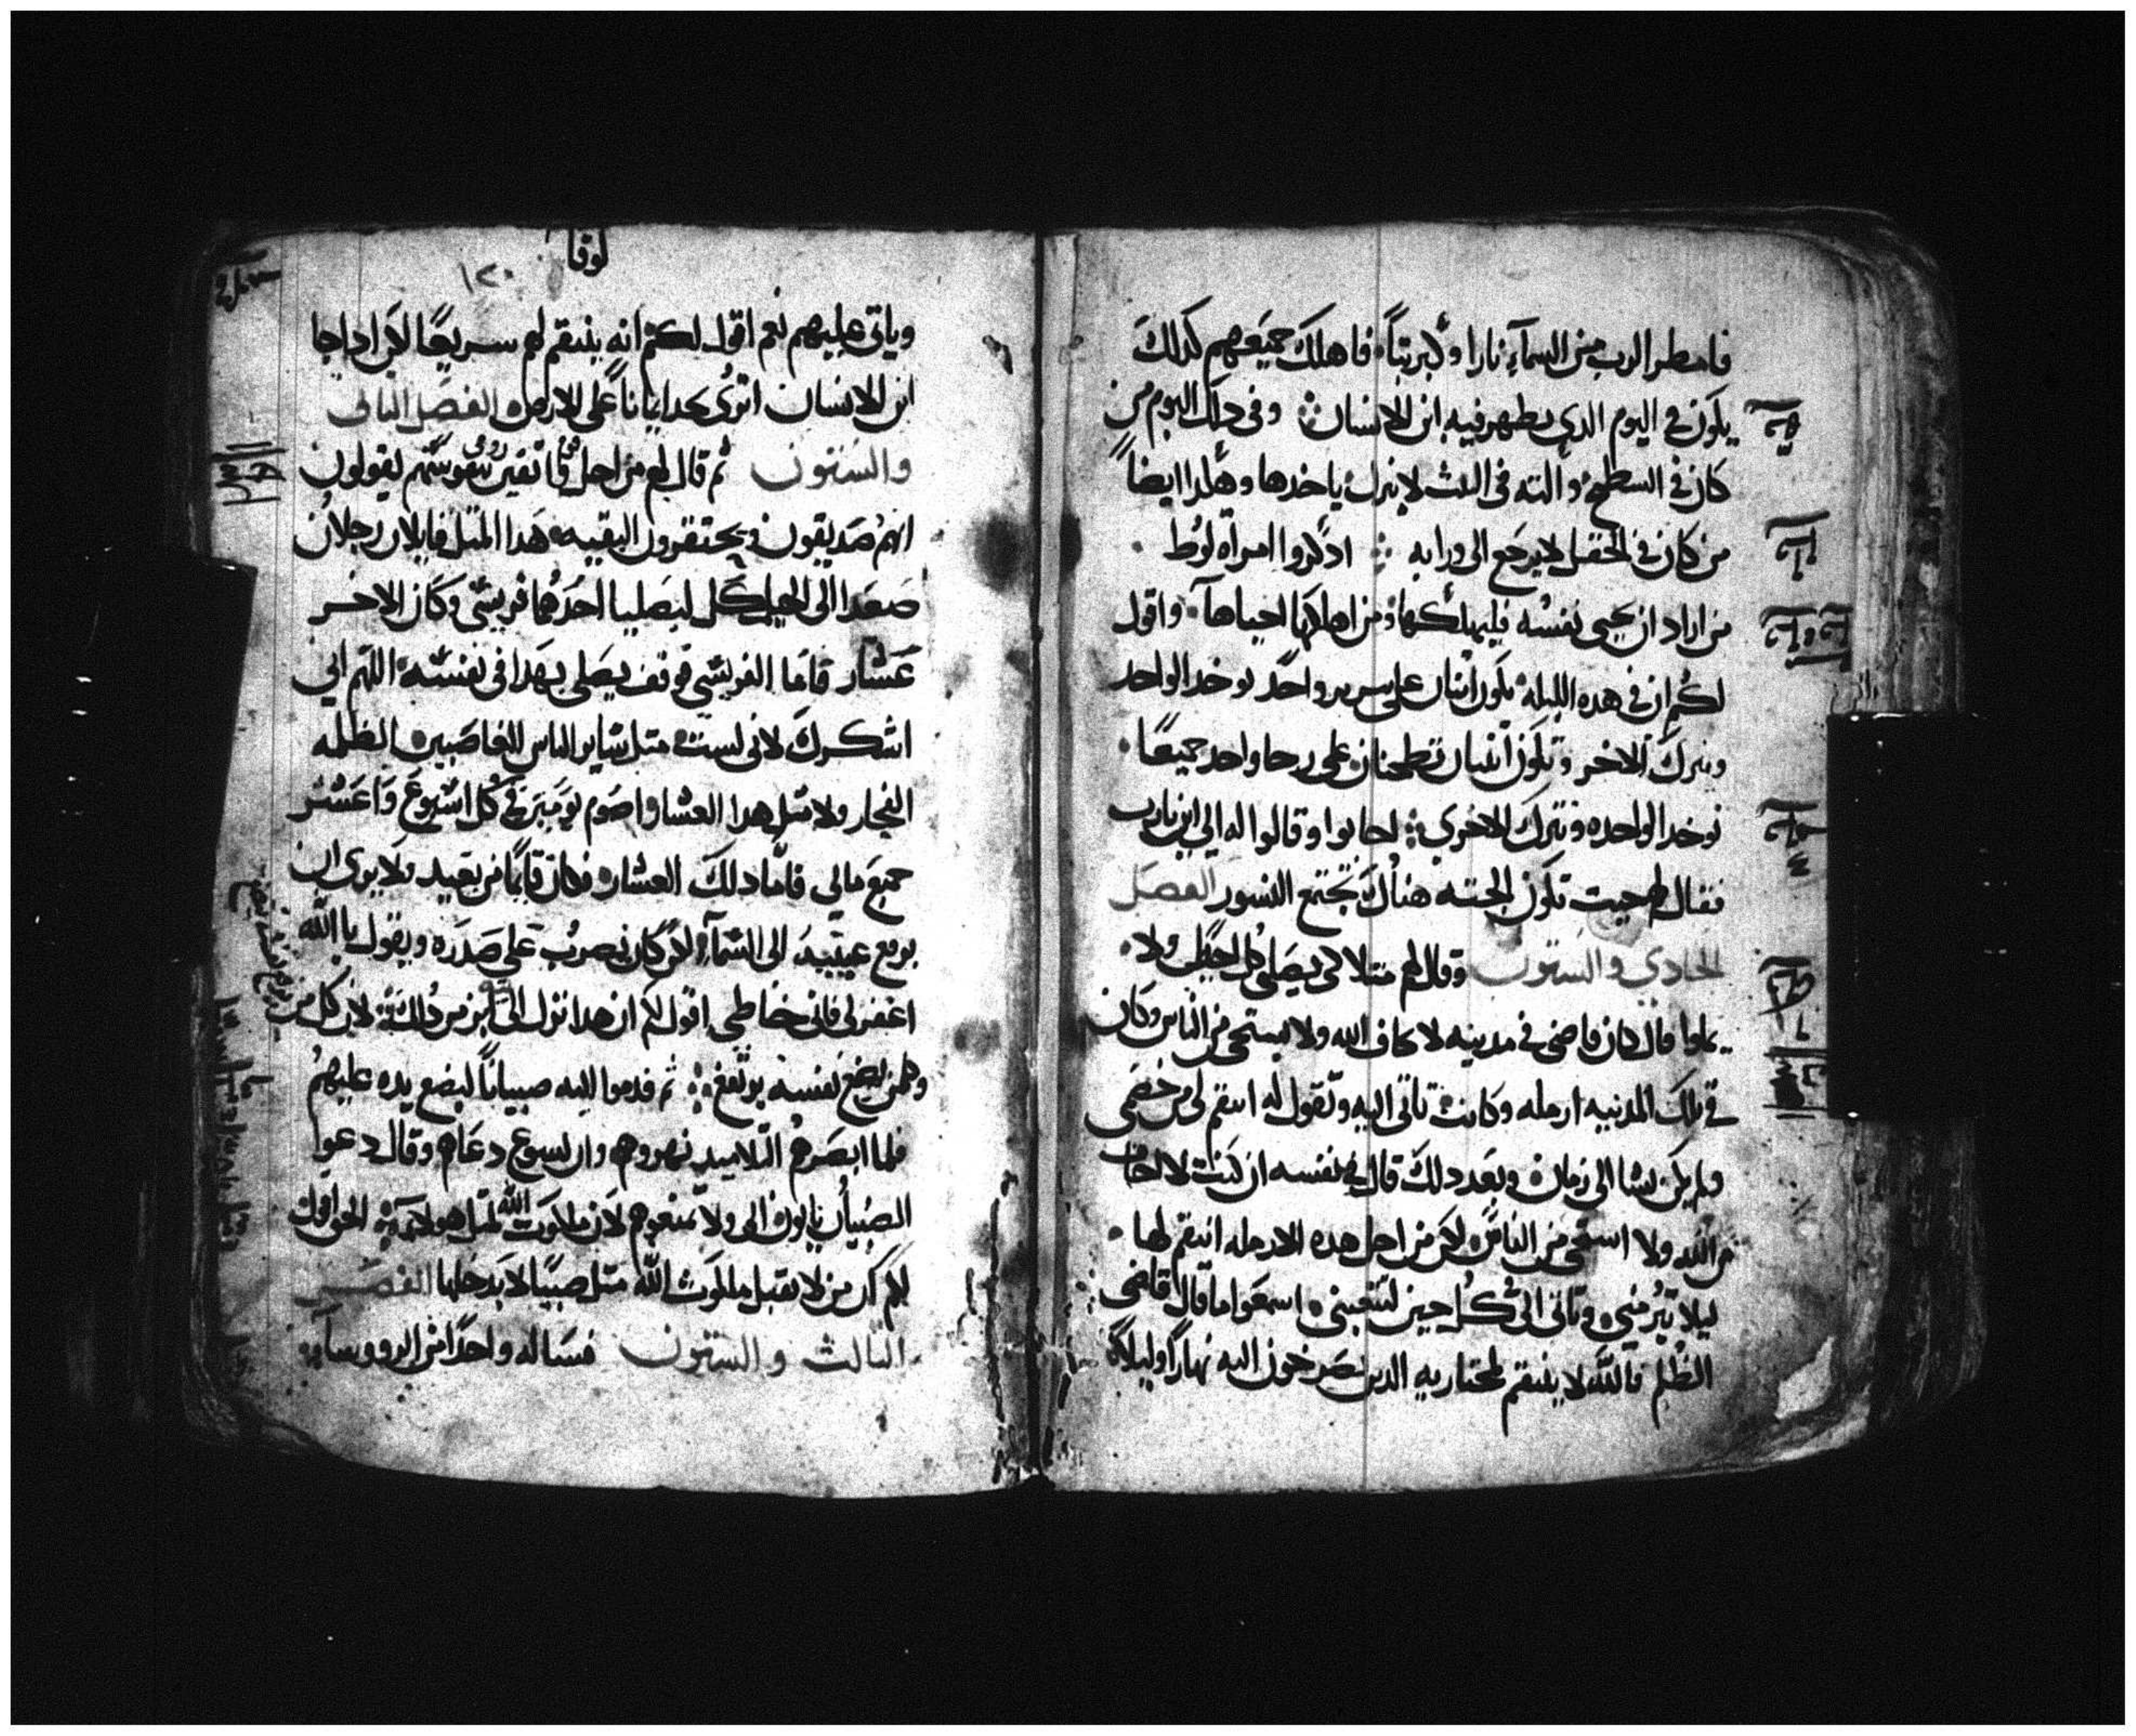 فامطر الرب من السمآء نارا وكبريتاً فاهلك جميعهم كدلك
يكون في اليوم الدي يطهر فيه ابن الانسان وفي دلك اليوم من
كان في السطح والته في البيت لا ينزل ياخدها وهكدا ايضاً
من كان في الحقل لا يرجع الى ورايه ادكروا امراة لوط
من اراد ان يحيي نفسه فليهلكها ومن اهلكها احياها واقول
لكم ان في هده الليله يكون اتنان على سرير واحد يوخد الواحد
ويترك الاخر وتكون اتنتان تطحنان على رحا واحد جميعا
توخد الواحده وتترك الاخرى اجابوا وقالوا له الى اين يارب
فقال لهم حيت تكون الجته هناك تجتمع النسور الفصل
الحادي والستون وقال لهم متلا لكي يصلوا كل حين ولا
يملوا قال كان قاضي في مدينه لا يخاف الله ولا يستحي من الناس وكان
في تلك المدينه ارمله وكانت تاتي اليه وتقول له انتقم لي من خصمي
ولم يكن يشا الى زمان وبعد دلك قال في نفسه ان كنت لا اخاف
من الله ولا استحي من الناس لكن من اجل هده الارمله انتقم لها
ليلا تبرمني وتاتي الي كل حين لتتعبني اسمعوا ما قال قاضي
الظلم فالله لا ينتقم لمختاريه الدين يصرخون اليه نهارا وليلا
لوقا
١٢٠
وياتي عليهم نعم اقول لكم انه ينتقم لهم سريعا لكن ادا جا
ابن الانسان اترى يجد ايماناً على الارض الفصل التاني
والستون تم قال لهم من اجل قوم واتقين بنفوسهم يقولون
انهم صديقون ويحتقرون البقيه هدا المتل قايلا ان رجلان
صعدا الى الهيكل ليصليا احدهما فريسي وكان الاخر
عشار فاما الفريسي فوقف يصلي بهدا في نفسه اللهم اني
اشكرك لاني لست متل ساير الناس الغاصبين الظلمه
الفجار ولا متل هدا العشار واصوم يومين في كل اسبوع واعشر
جميع مالي فاما دلك العشار فكان قايما من بعيد ولا يرى ان
يرفع عينيه الى السمآء لكن كان يضرب على صدره ويقول يا الله
اغفر لي فاني خاطي اقول لكم ان هدا نزل الى بيته من دلك لان كل من
وكل من يضع نفسه يرتفع تم قدموا اليه صبياناً ليضع يده عليهم
فلما ابصرهم التلاميد نهروهم وان يسوع دعاهم وقال دعوا
الصبيان ياتون الي ولا تمنعوهم لان ملكوت الله لمتل هولاء الحق اقول
لكم ان من لا يقبل ملكوت الله متل صبي لا يدخلها الفصل
التالت والستون فساله واحدا من الروسآء